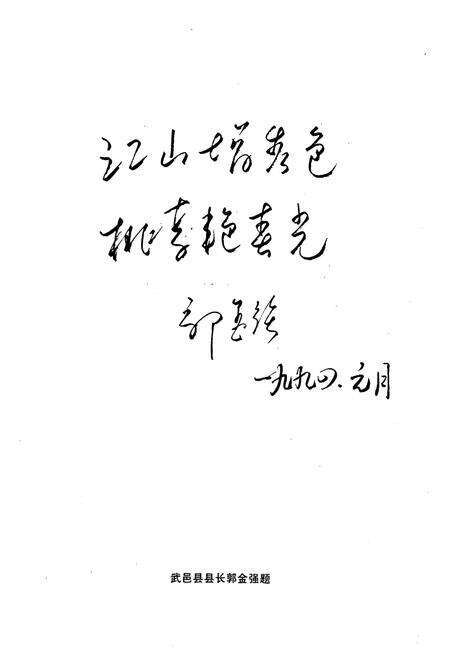 江山增秀色
桃李艳春光
郭金强
一九九四.元月
武邑县县长郭金强题